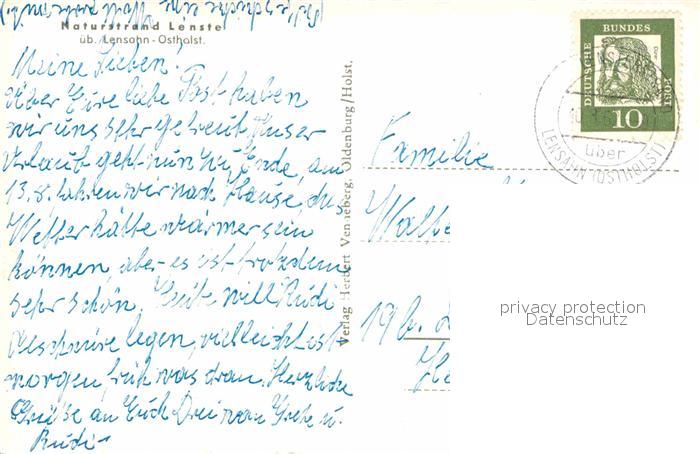 Naturstrand Lenste
üb. Lensahn-Ostholst.
Meine Lieben.
Über Eure liebe Post haben
wir uns sehr gefreut. Unser
Urlaub geht nun zu Ende, am
13.8. fahren wir nach Hause, das
Wetter hätte wärmer sein
können, aber es ist trotzdem
sehr schön. Heute will Rudi
Aalschnüre legen, vielleicht ist
morgen früh was dran. Herzliche
Grüße an Euch Drei von Grete u.
Rudi
Verlag Herbert Venneberg, Oldenburg/Holst.
DEUTSCHE BUNDES POST
10
über
LENSAHN (OSTHOLST)
Familie
Walte
19b.
privacy protection
Datenschutz